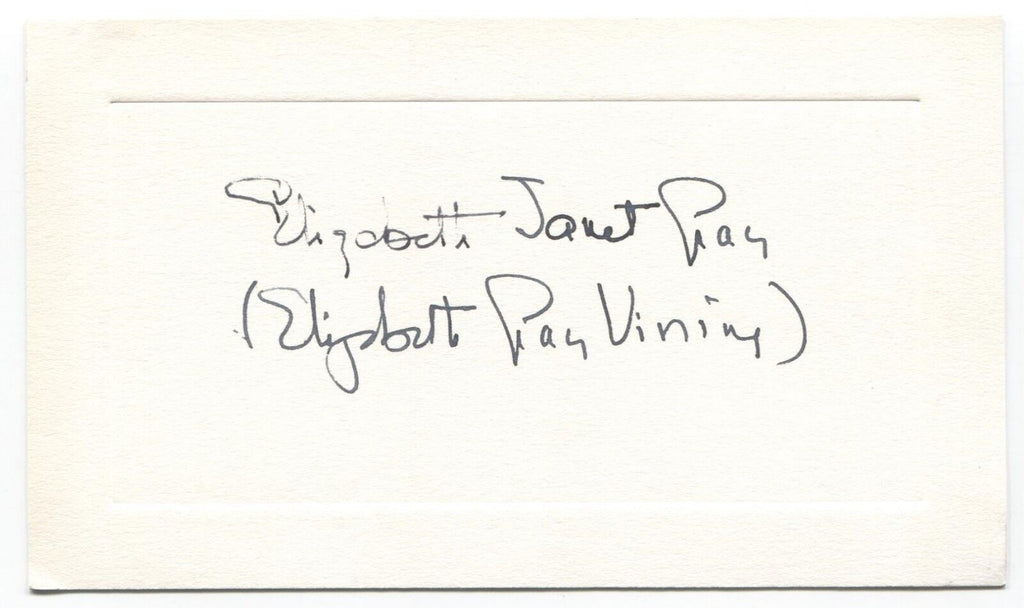 Elizabeth Janet Gray
(Elizabeth Gray Vining)